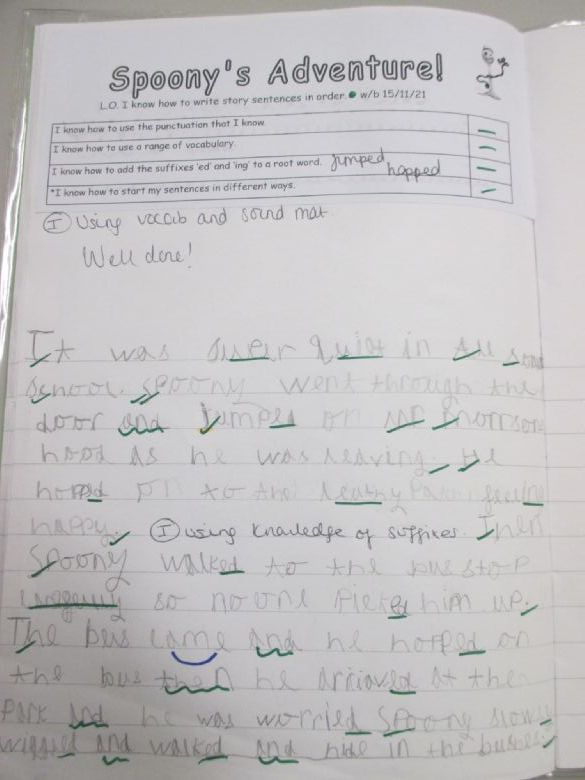 Spoony's Adventure!
L.O. I know how to write story sentences in order. w/b 15/11/21
I know how to use the punctuation that I know.
I know how to use a range of vocabulary.
I know how to add the suffixes 'ed' and 'ing' to a root word. jumped hopped
*I know how to start my sentences in different ways.
I Using vocab and sound mat.
Well done!
It was super quiet in
school. Spoony went through the
door and jumped on Mr
hood as he was leaving. He
hopped on to the
happy. I using knowledge of suffixes. Then
Spoony walked to the bus stop
so no one him up.
The bus came and he hopped on
the bus then he at the
park and he was worried Spoony
and walked and hide in the